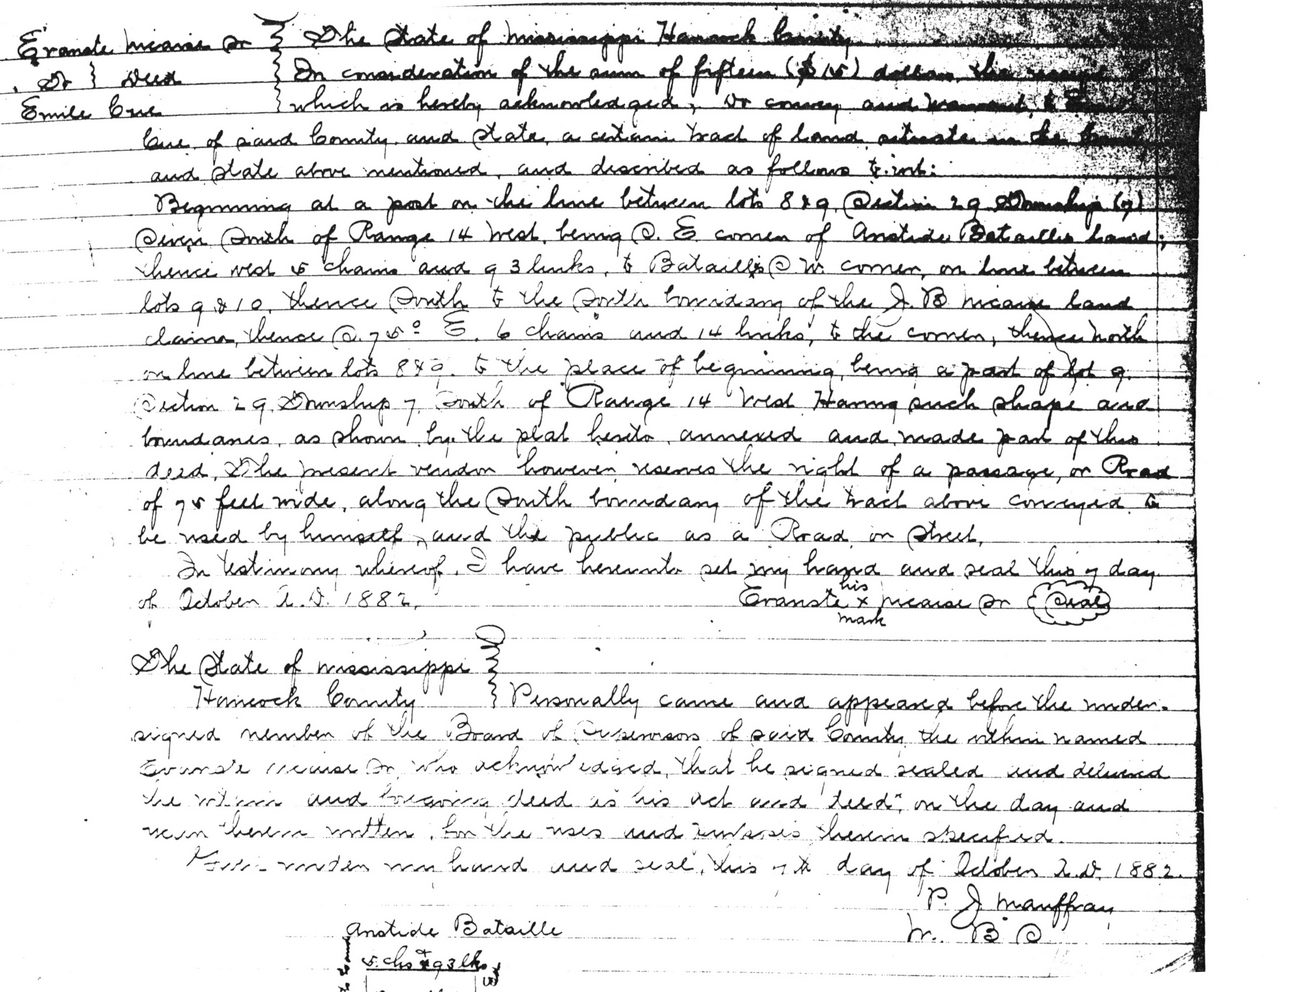 Evariste Mcaise Sr } The State of Mississippi Hancock County
To } Deed } In consideration of the sum of fifteen ($15) dollars, the receipt of
Emile Cue } which is hereby acknowledged, do convey and warrant, to Emile
Cue, of said County and State, a certain tract of land situate in the County
and State above mentioned, and described as follows to-wit:
Beginning at a post on the line between lots 8 & 9, Section 29 Township (7)
Seven South of Range 14 West, being S. E corner of Aristide Bataille's land;
thence west 5 chains and 93 links, to Bataille's S W. corner, on line between
lots 9 & 10, thence South to the South boundary of the J. B Mcaise land
claim, thence S. 75° E. 6 chains and 14 links, to the corner, thence North
on line between lots 8 & 9. to the place of beginning, being a part of lot 9.
Section 29 Township 7 South of Range 14 West Having such shape and
boundaries, as shown by the plat hereto annexed and made part of this
deed, The present vendor however reserves the right of a passage, or Road
of 75 feet wide, along the South boundary of the tract above conveyed to
be used by himself, and the public as a Road or Street.
In testimony whereof, I have hereunto set my hand and seal this 7 day
of October A. D. 1882.
his
Evariste x Mcaise Sr {Seal}
mark
The State of Mississippi }
Hancock County } Personally came and appeared before the under-
signed member of the Board of Supervisors of said County the within named
Evariste Mcaise Sr, who acknowledged, that he signed sealed and delivered
the within and foregoing deed as his act and deed, on the day and
year therein written, for the uses and purposes therein specified.
Given under my hand and seal, this 7th day of October A.D. 1882.
P. J. Mauffray
M. B S
Aristide Bataille
5. chs & 93 lks